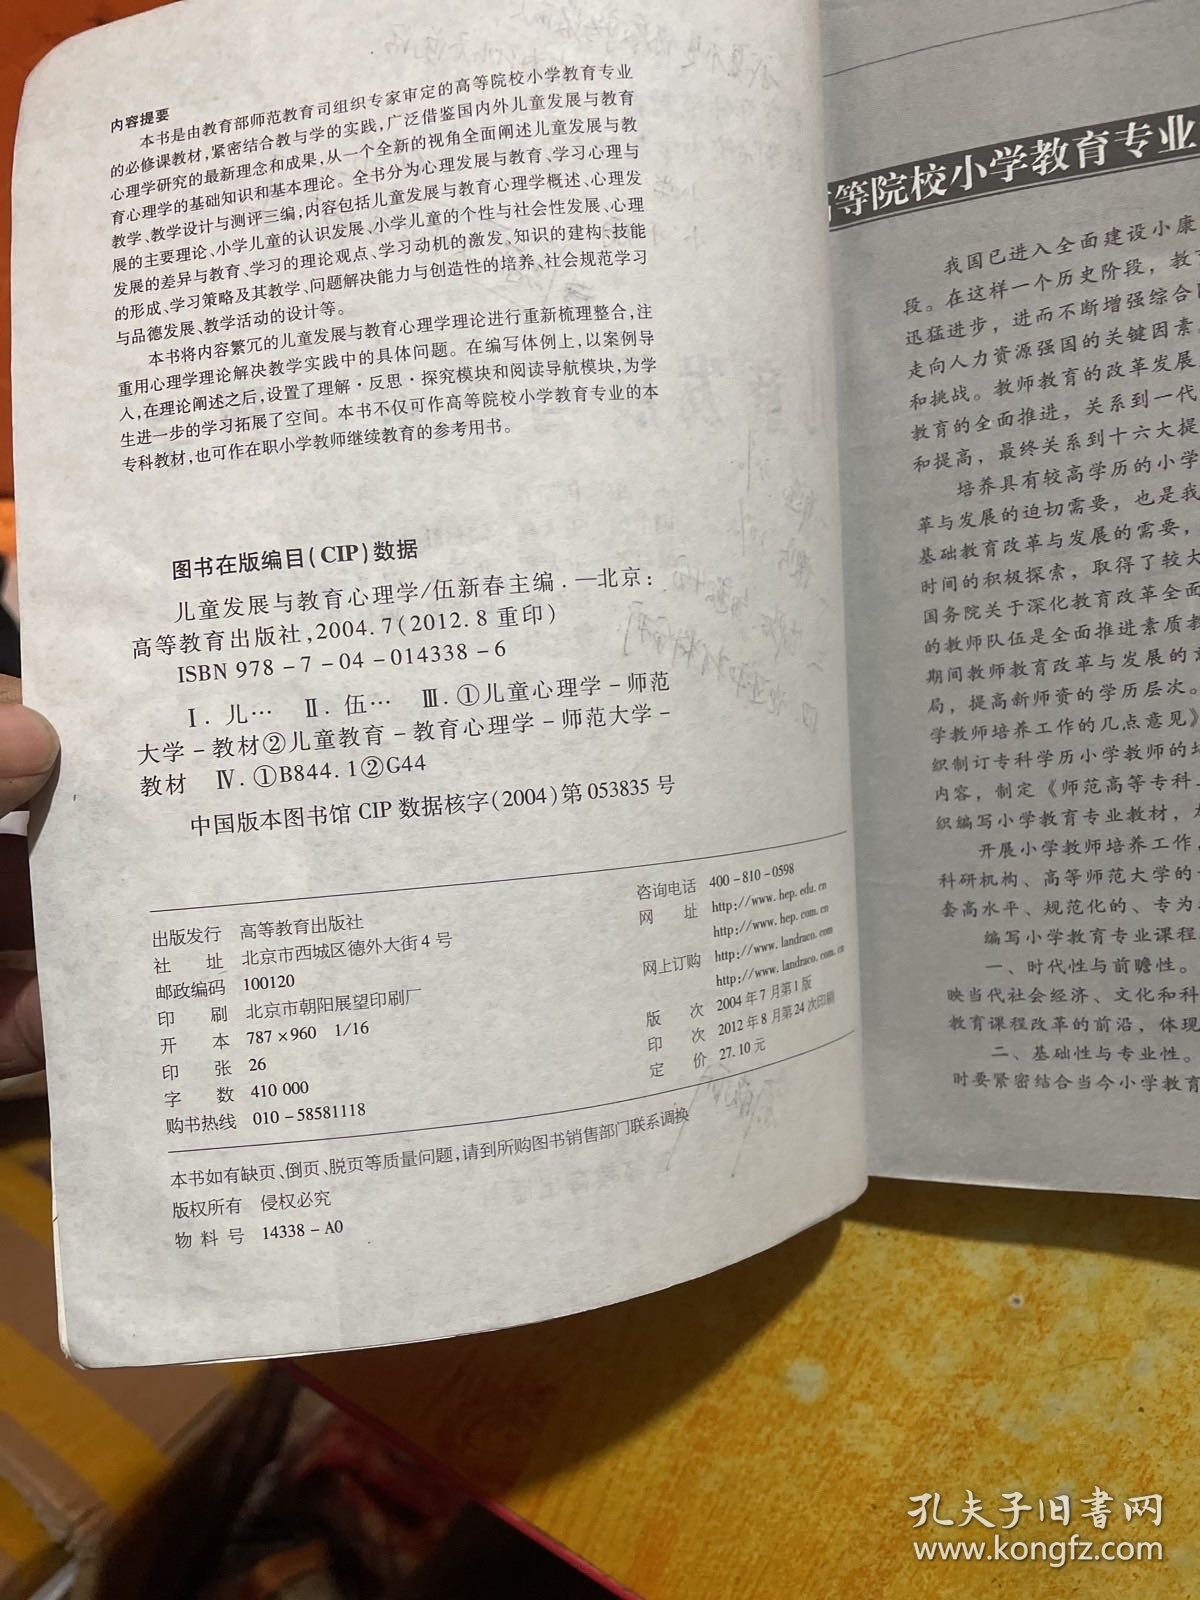 内容提要
本书是由教育部师范教育司组织专家审定的高等院校小学教育专业
的必修课教材,紧密结合教与学的实践,广泛借鉴国内外儿童发展与教育
心理学研究的最新理念和成果,从一个全新的视角全面阐述儿童发展与教
育心理学的基础知识和基本理论。全书分为心理发展与教育、学习心理与
教学、教学设计与测评三编,内容包括儿童发展与教育心理学概述、心理发
展的主要理论、小学儿童的认识发展、小学儿童的个性与社会性发展、心理
发展的差异与教育、学习的理论观点、学习动机的激发、知识的建构、技能
的形成、学习策略及其教学、问题解决能力与创造性的培养、社会规范学习
与品德发展、教学活动的设计等。
本书将内容繁冗的儿童发展与教育心理学理论进行重新梳理整合,注
重用心理学理论解决教学实践中的具体问题。在编写体例上,以案例导
入,在理论阐述之后,设置了理解·反思·探究模块和阅读导航模块,为学
生进一步的学习拓展了空间。本书不仅可作高等院校小学教育专业的本
专科教材,也可作在职小学教师继续教育的参考用书。
图书在版编目(CIP)数据
儿童发展与教育心理学/伍新春主编.—北京:
高等教育出版社,2004.7(2012.8重印)
ISBN 978-7-04-014338-6
Ⅰ.儿… Ⅱ.伍… Ⅲ.①儿童心理学-师范
大学-教材②儿童教育-教育心理学-师范大学-
教材 Ⅳ.①B844.1②G44
中国版本图书馆CIP数据核字(2004)第053835号
出版发行 高等教育出版社
社 址 北京市西城区德外大街4号
邮政编码 100120
印 刷 北京市朝阳展望印刷厂
开 本 787×960 1/16
印 张 26
字 数 410 000
购书热线 010-58581118
咨询电话 400-810-0598
网 址 http://www.hep.edu.cn
http://www.hep.com.cn
网上订购 http://www.landraco.com
http://www.landraco.com.cn
版 次 2004年7月第1版
印 次 2012年8月第24次印刷
定 价 27.10元
本书如有缺页、倒页、脱页等质量问题,请到所购图书销售部门联系调换
版权所有 侵权必究
物 料 号 14338-A0
等院校小学教育专业
我国已进入全面建设小康
段。在这样一个历史阶段,教
迅猛进步,进而不断增强综合
走向人力资源强国的关键因素
和挑战。教师教育的改革发展
教育的全面推进,关系到一代
和提高,最终关系到十六大提
培养具有较高学历的小学
革与发展的迫切需要,也是我
基础教育改革与发展的需要,
时间的积极探索,取得了较大
国务院关于深化教育改革全面
的教师队伍是全面推进素质教
期间教师教育改革与发展的
局,提高新师资的学历层次。
学教师培养工作的几点意见》
织制订专科学历小学教师的培
内容,制定《师范高等专科
织编写小学教育专业教材,
开展小学教师培养工作,
科研机构、高等师范大学的
套高水平、规范化的、专为
编写小学教育专业课程
一、时代性与前瞻性。
映当代社会经济、文化和科
教育课程改革的前沿,体现
二、基础性与专业性。
时要紧密结合当今小学教育
孔夫子旧书网
www.kongfz.com